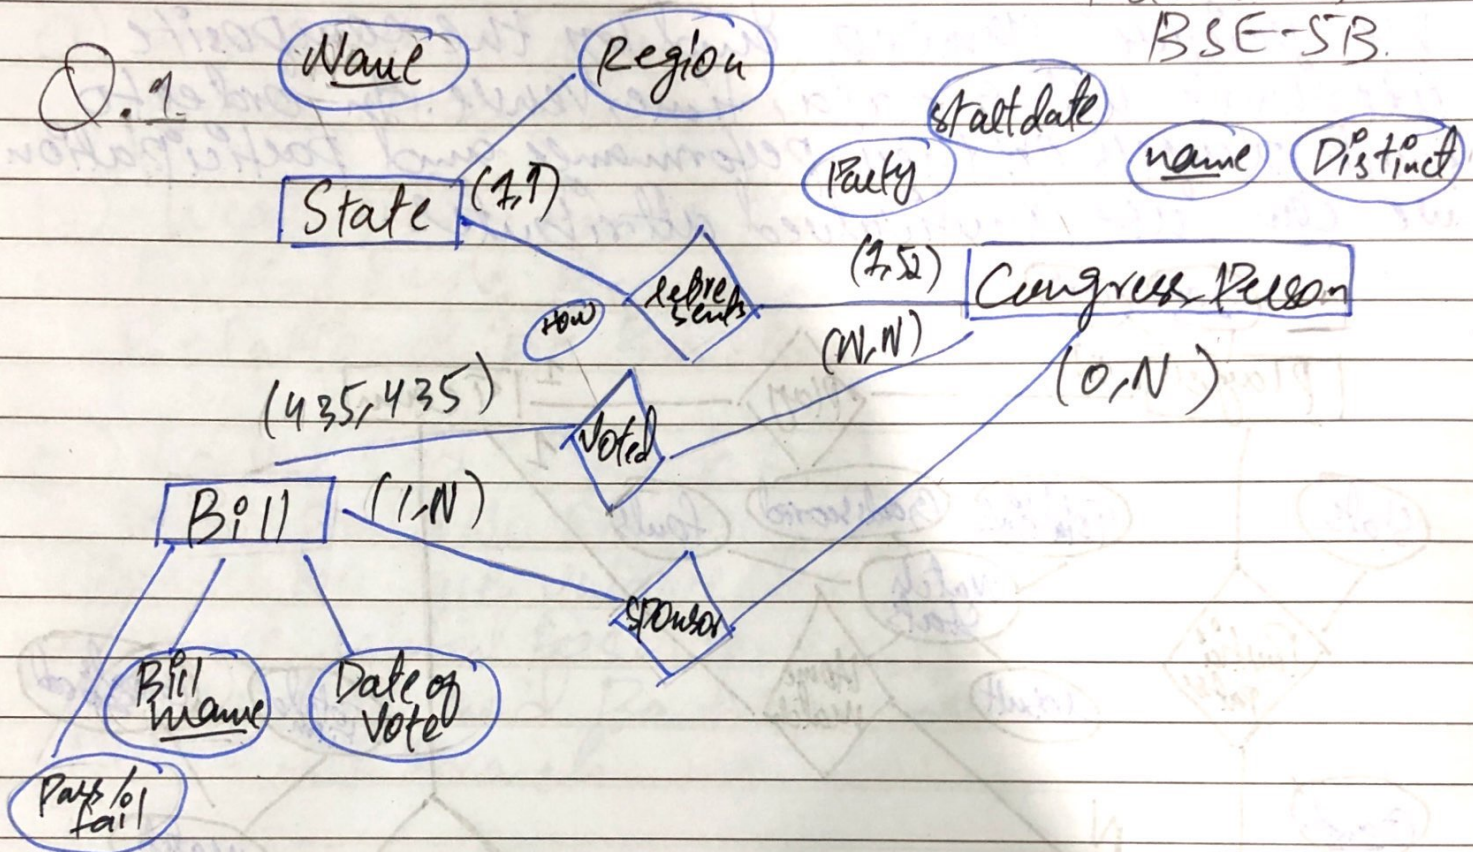 BSE-5B.
Q.1
Name
Region
Start date
Party
name
Distinct
State
(1,1)
(1,52)
Congress Person
Represents
How
(N,N)
(0,N)
(435,435)
Voted
Bill
(1,N)
Sponsor
Bill
name
Date of
Vote
Pass/
fail